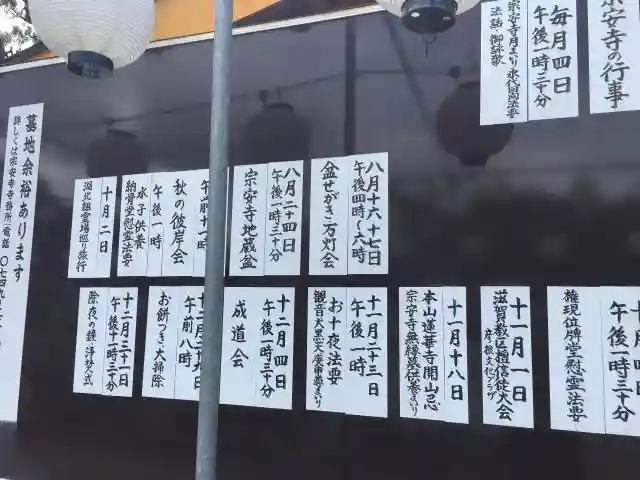 宗安寺の行事
毎月四日
午後一時三十分
宗安寺月まいり
永代回向法要
法話・御詠歌
八月十六十七日
午後四時〜六時
盆せがき・万灯会
八月二十四日
午後一時三十分
宗安寺地蔵盆
秋の彼岸会
午後一時
水子供養
納骨堂慰霊法要
十月二日
湖北祖霊場巡り旅行
午後一時
権現位牌堂慰霊法要
十一月一日
滋賀教区檀信徒大会
彦根文化プラザ
十一月十八日
本山蓮華寺開山忌
宗安寺無縁墓まいり
十一月二十三日
午後一時
お十夜法要
観音大黒天庚申尊まいり
十二月四日
午後一時三十分
成道会
午前八時
お餅つき・大掃除
十二月三十一日
午後十一時三十分
除夜の鐘・浄焚式
墓地余裕あります
詳しくは宗安寺寺務所(電話